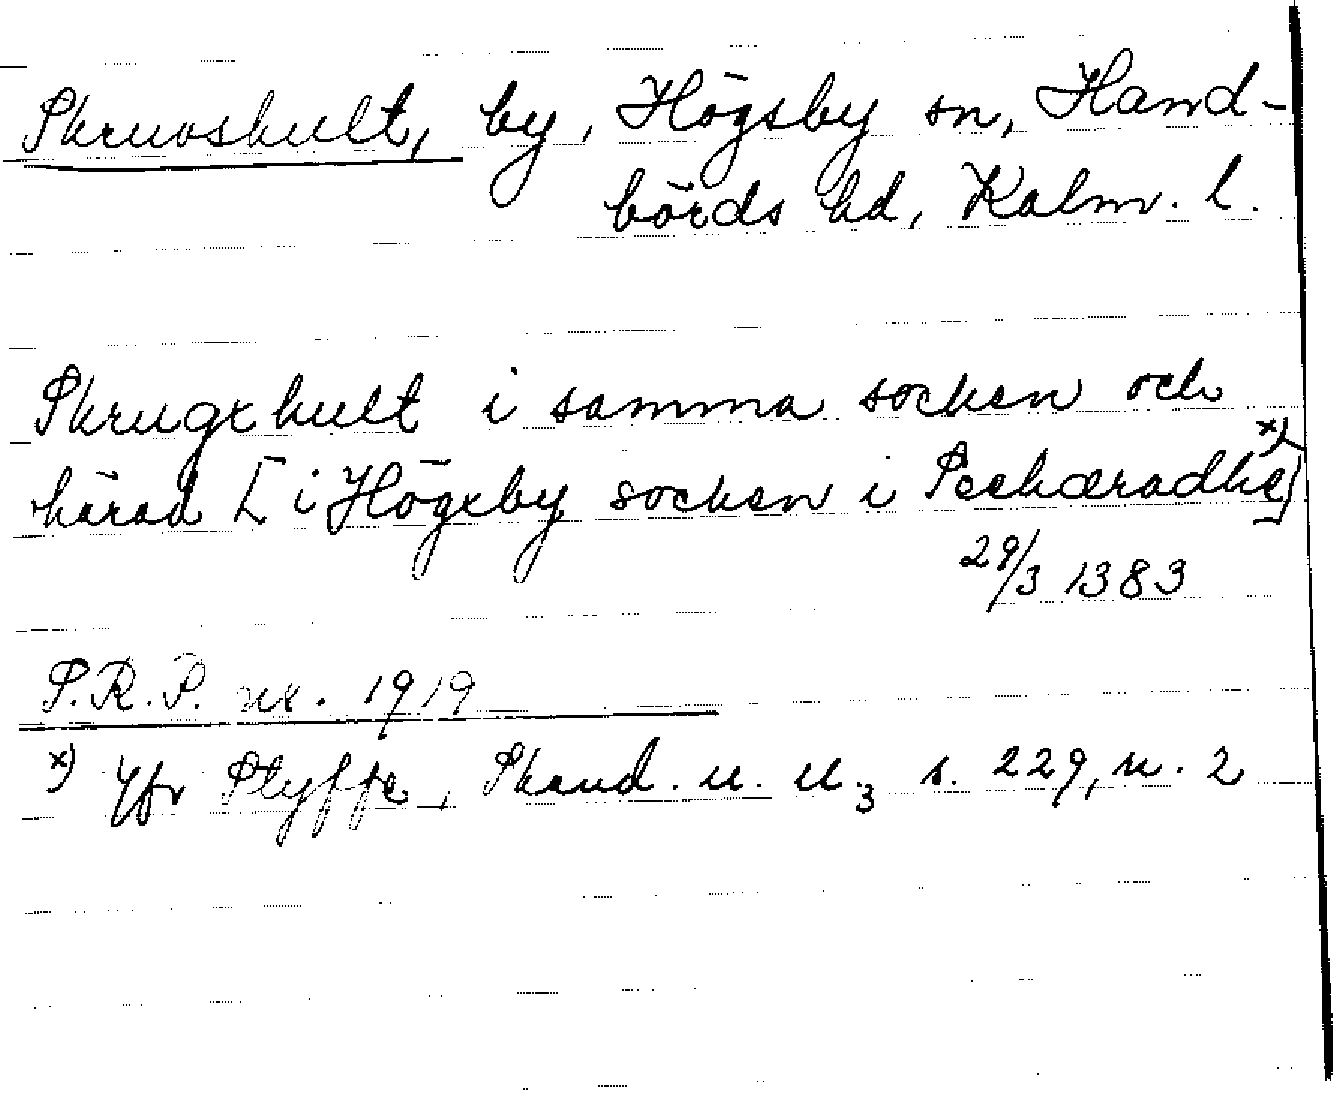 Skruvshult, by, Högsby sn, Hand-
börds hd, Kalm. l.
Skrugxhult i samma socken och
härad [i Högxby socken i Seehæradhe]x)
29/3 1383
S.R.P. nr. 1919
x) Jfr Styffe, Skand. u. U3 s. 229, n. 2